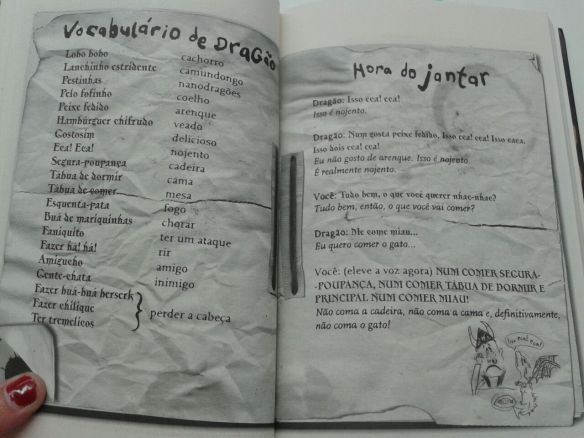 Vocabulário de Dragão
Lobo bobo cachorro
Lanchinho estridente camundongo
Pestinhas nanodragões
Pelo fofinho coelho
Peixe fedido arenque
Hambúrguer chifrudo veado
Gostosim delicioso
Eca! Eca! nojento
Segura-poupança cadeira
Tábua de dormir cama
Tábua de comer mesa
Esquenta-pata fogo
Buá de mariquinhas chorar
Faniquito ter um ataque
Fazer há! há! rir
Amigucho amigo
Gente-chata inimigo
Fazer buá-buá berserk
Fazer chilique perder a cabeça
Ter tremelicos
Hora do jantar
Dragão: Isso eca! eca!
Isso é nojento.
Dragão: Num gosta peixe fedido, Isso eca! eca! Isso caca,
Isso dois eca! eca!
Eu não gosto de arenque. Isso é nojento.
É realmente nojento.
Você: Tudo bem, o que você querer nhac-nhac?
Tudo bem, então, o que você vai comer?
Dragão: Me come miau...
Eu quero comer o gato...
Você: (eleve a voz agora) NUM COMER SEGURA-
-POUPANÇA, NUM COMER TÁBUA DE DORMIR E
PRINCIPAL NUM COMER MIAU!
Não coma a cadeira, não coma a cama e, definitivamente,
não coma o gato!
Isso eca! eca!